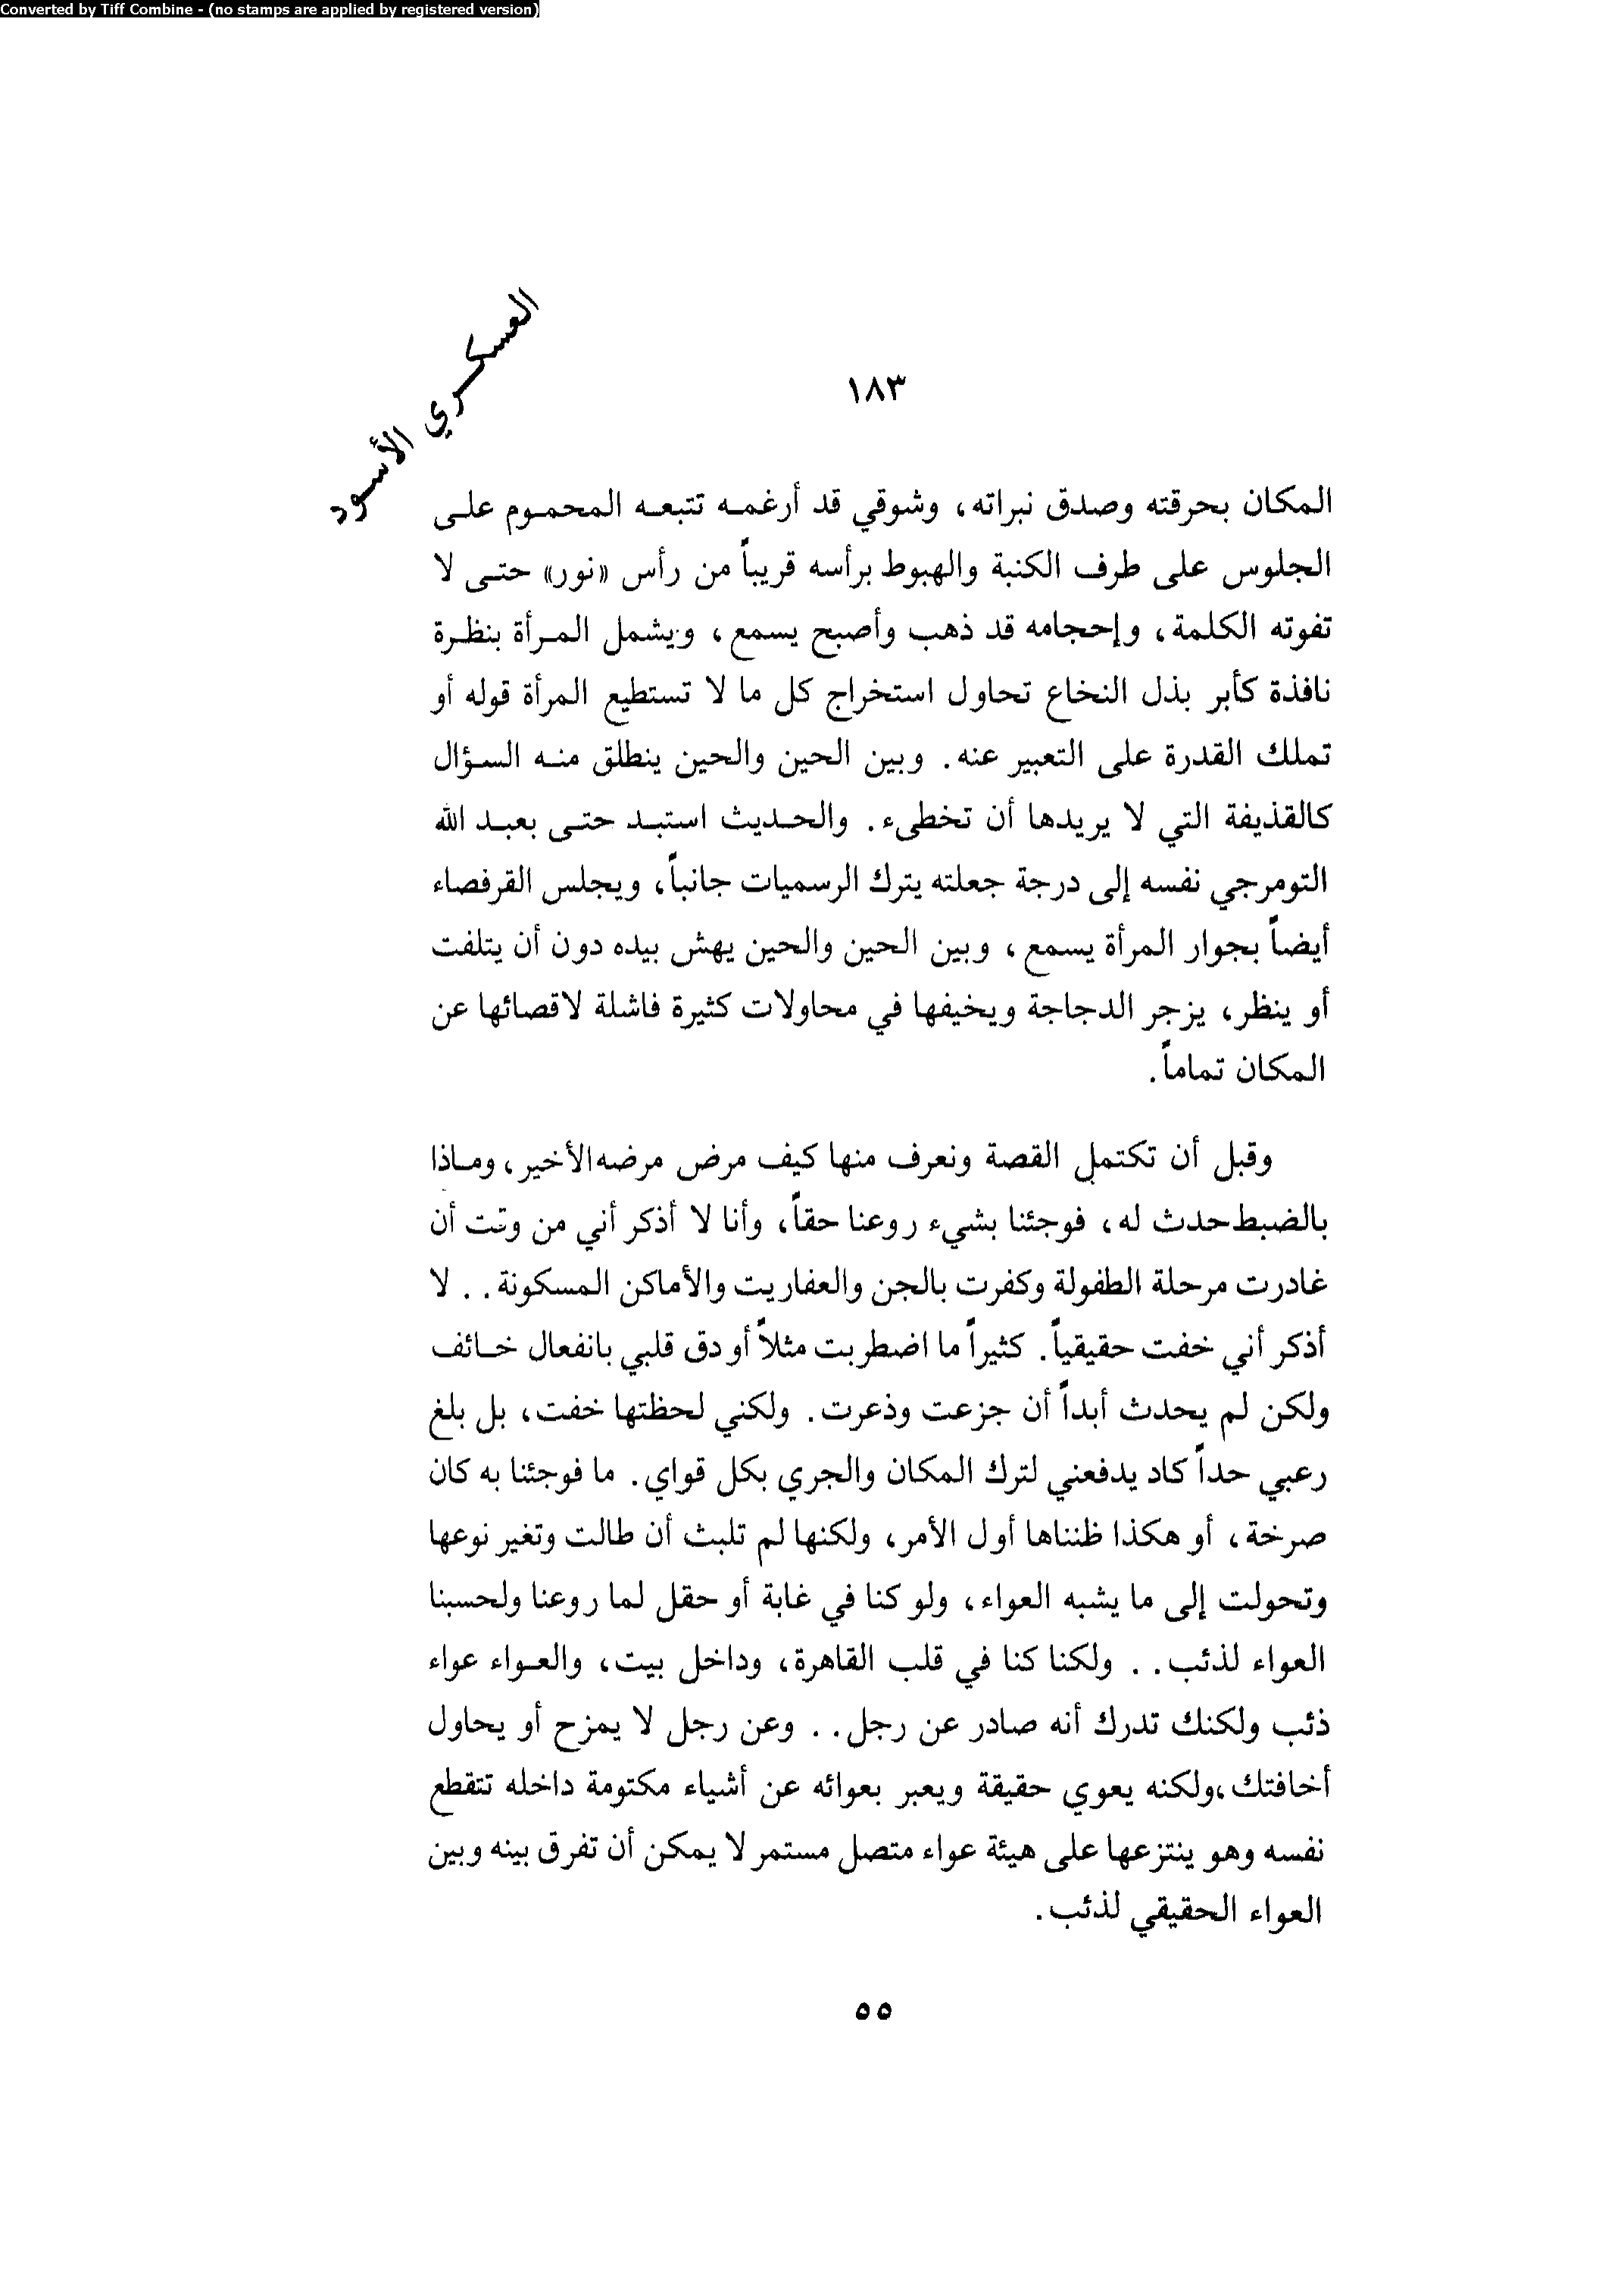 Converted by Tiff Combine - (no stamps are applied by registered version)
العسكري الأسود
١٨٣
المكان بحرقته وصدق نبراته، وشوقي قد أرغمه تتبعه المحموم على
الجلوس على طرف الكنبة والهبوط برأسه قريباً من رأس «نور» حتى لا
تفوته الكلمة، وإحجامه قد ذهب وأصبح يسمع، ويشمل المرأة بنظرة
نافذة كأبر بذل النخاع تحاول استخراج كل ما لا تستطيع المرأة قوله أو
تملك القدرة على التعبير عنه. وبين الحين والحين ينطلق منه السؤال
كالقذيفة التي لا يريدها أن تخطىء. والحديث استبد حتى بعبد الله
التومرجي نفسه إلى درجة جعلته يترك الرسميات جانباً، ويجلس القرفصاء
أيضاً بجوار المرأة يسمع، وبين الحين والحين يهش بيده دون أن يتلفت
أو ينظر، يزجر الدجاجة ويخيفها في محاولات كثيرة فاشلة لاقصائها عن
المكان تماماً.
وقبل أن تكتمل القصة ونعرف منها كيف مرض مرضه الأخير، وماذا
بالضبط حدث له، فوجئنا بشيء روعنا حقاً، وأنا لا أذكر أني من وقت أن
غادرت مرحلة الطفولة وكفرت بالجن والعفاريت والأماكن المسكونة.. لا
أذكر أني خفت حقيقياً. كثيراً ما اضطربت مثلاً أو دق قلبي بانفعال خائف
ولكن لم يحدث أبداً أن جزعت وذعرت. ولكني لحظتها خفت، بل بلغ
رعبي حداً كاد يدفعني لترك المكان والجري بكل قواي. ما فوجئنا به كان
صرخة، أو هكذا ظنناها أول الأمر، ولكنها لم تلبث أن طالت وتغير نوعها
وتحولت إلى ما يشبه العواء، ولو كنا في غابة أو حقل لما روعنا ولحسبنا
العواء لذئب.. ولكنا كنا في قلب القاهرة، وداخل بيت، والعواء عواء
ذئب ولكنك تدرك أنه صادر عن رجل.. وعن رجل لا يمزح أو يحاول
أخافتك، ولكنه يعوي حقيقة ويعبر بعوائه عن أشياء مكتومة داخله تتقطع
نفسه وهو ينتزعها على هيئة عواء متصل مستمر لا يمكن أن تفرق بينه وبين
العواء الحقيقي لذئب.
٥٥